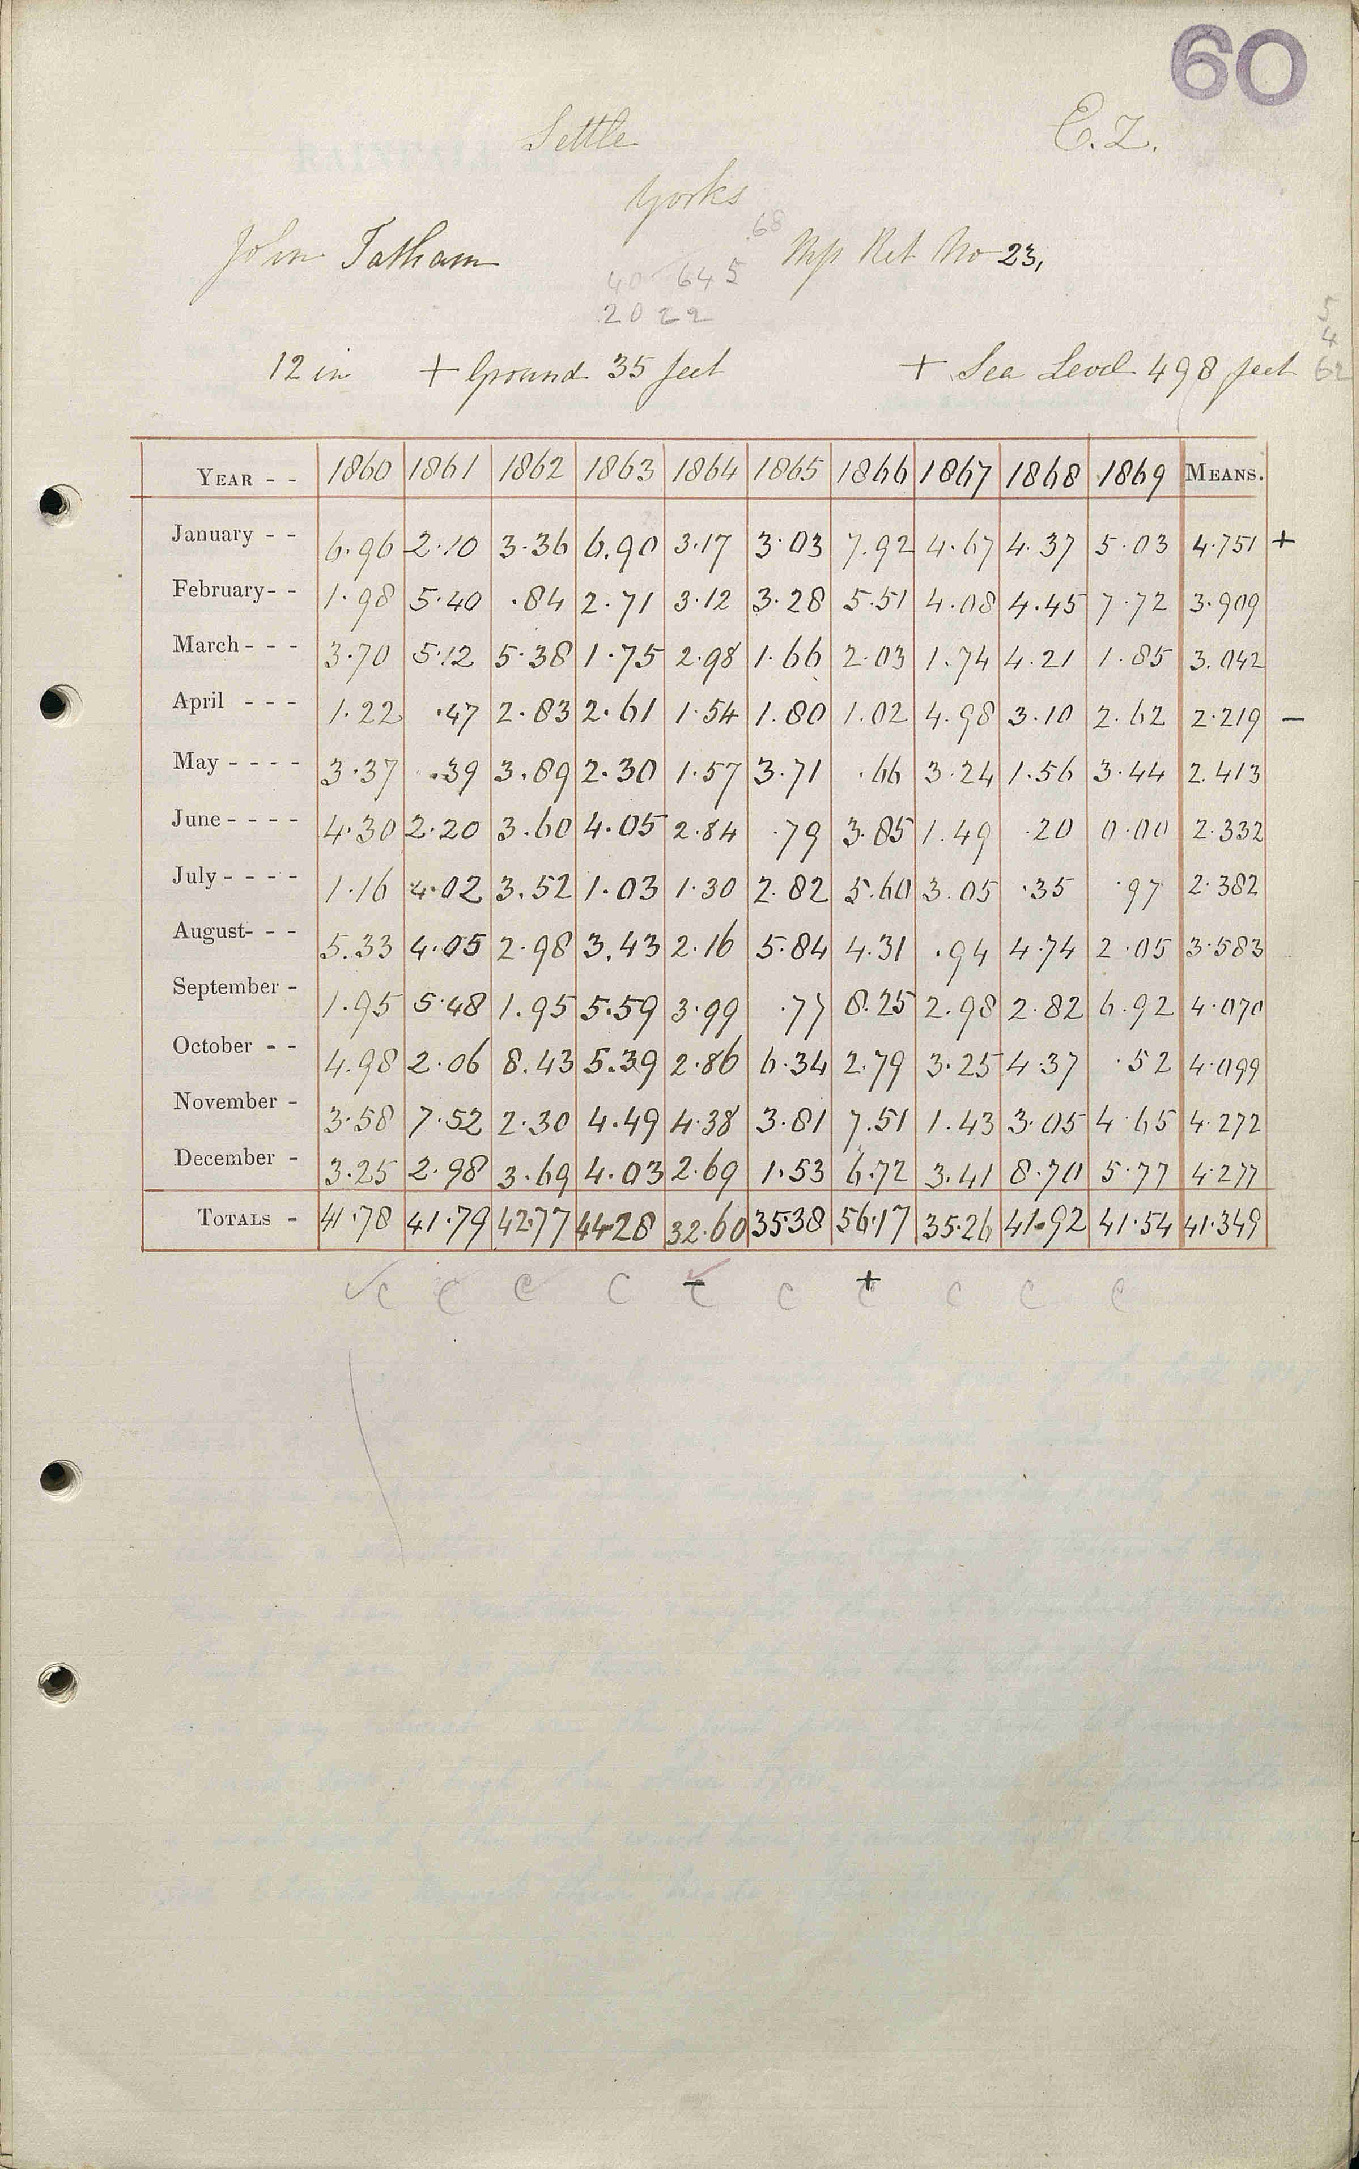 60
Settle
E.Z.
Yorks
68
John Tatham
Mp Ret No 23,
40 645
2022
5
4
62
12 in + Ground 35 feet + Sea Level 498 feet
YEAR - - 1860 1861 1862 1863 1864 1865 1866 1867 1868 1869 MEANS.
January - - 6.96 2.10 3.36 6.90 3.17 3.03 7.92 4.67 4.37 5.03 4.751 +
February - - 1.98 5.40 .84 2.71 3.12 3.28 5.51 4.08 4.45 7.72 3.909
March - - - 3.70 5.12 5.38 1.75 2.98 1.66 2.03 1.74 4.21 1.85 3.042
April - - - 1.22 .47 2.83 2.61 1.54 1.80 1.02 4.98 3.10 2.62 2.219 -
May - - - - 3.37 .39 3.89 2.30 1.57 3.71 .66 3.24 1.56 3.44 2.413
June - - - - 4.30 2.20 3.60 4.05 2.84 .79 3.85 1.49 .20 0.00 2.332
July - - - - 1.16 4.02 3.52 1.03 1.30 2.82 5.60 3.05 .35 .97 2.382
August - - - 5.33 4.05 2.98 3.43 2.16 5.84 4.31 .94 4.74 2.05 3.583
September - 1.95 5.48 1.95 5.59 3.99 .77 8.25 2.98 2.82 6.92 4.070
October - - 4.98 2.06 8.43 5.39 2.86 6.34 2.79 3.25 4.37 .52 4.099
November - 3.58 7.52 2.30 4.49 4.38 3.81 7.51 1.43 3.05 4.65 4.272
December - 3.25 2.98 3.69 4.03 2.69 1.53 6.72 3.41 8.70 5.77 4.277
TOTALS - 41.78 41.79 42.77 44.28 32.60 35.38 56.17 35.26 41.92 41.54 41.349
C C C C - C C + C C C C